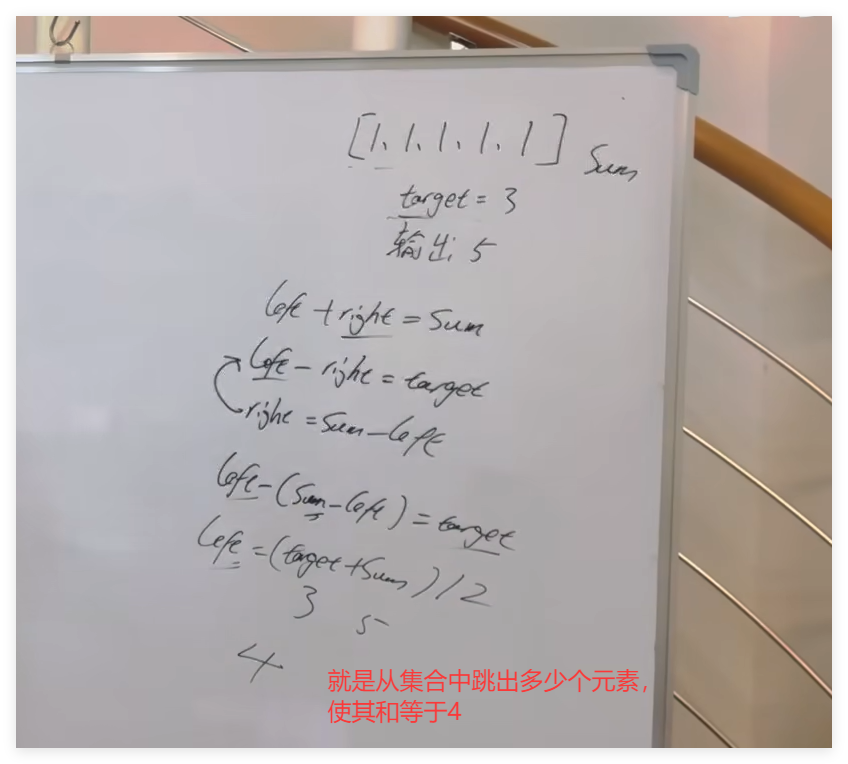 [1、1、1、1、1] Sum
target = 3
输出 5
left + right = Sum
left - right = target
right = Sum - left
left - (Sum - left) = target
left = (target + Sum) / 2
3 5
4
就是从集合中跳出多少个元素，
使其和等于4